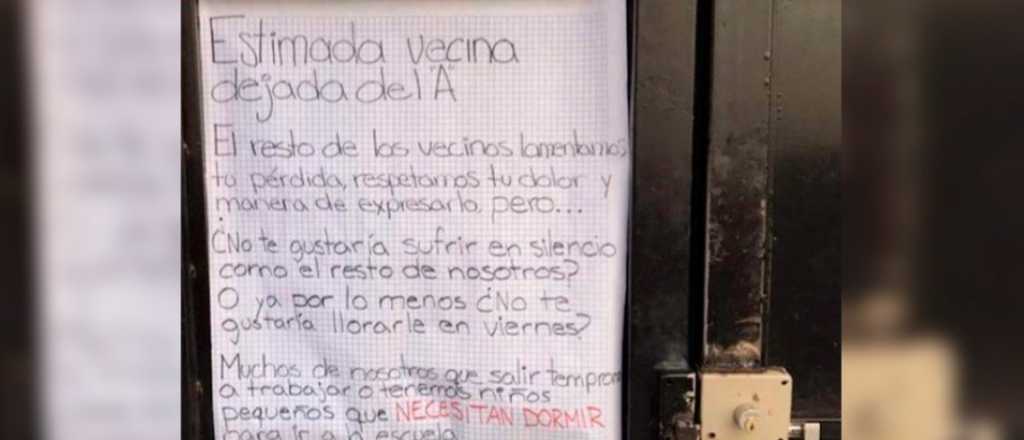 Estimada vecina
dejada del 'A
El resto de los vecinos lamentamos
tu pérdida, respetamos tu dolor y
manera de expresarlo, pero...
¿No te gustaría sufrir en silencio
como el resto de nosotros?
O ya por lo menos ¿No te
gustaría llorarle en viernes?
Muchos de nosotros que salir
a trabajar o tenemos niños
pequeños que NECESITAN DORMIR
para ir a la escuela